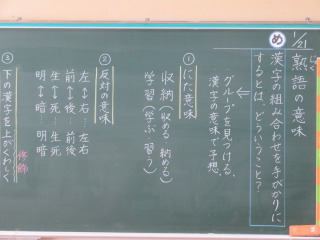 1/21
熟語の意味
め
漢字の組み合わせを手がかりに
するとは、どういうこと?
グループを見つける。
漢字の意味で予想。
①にた意味
収納(収める 納める)
学習(学ぶ 習う)
②反対の意味
左↔右… 左右
前↔後… 前後
生↔死… 生死
明↔暗… 明暗
③下の漢字を上がくわしく
修飾